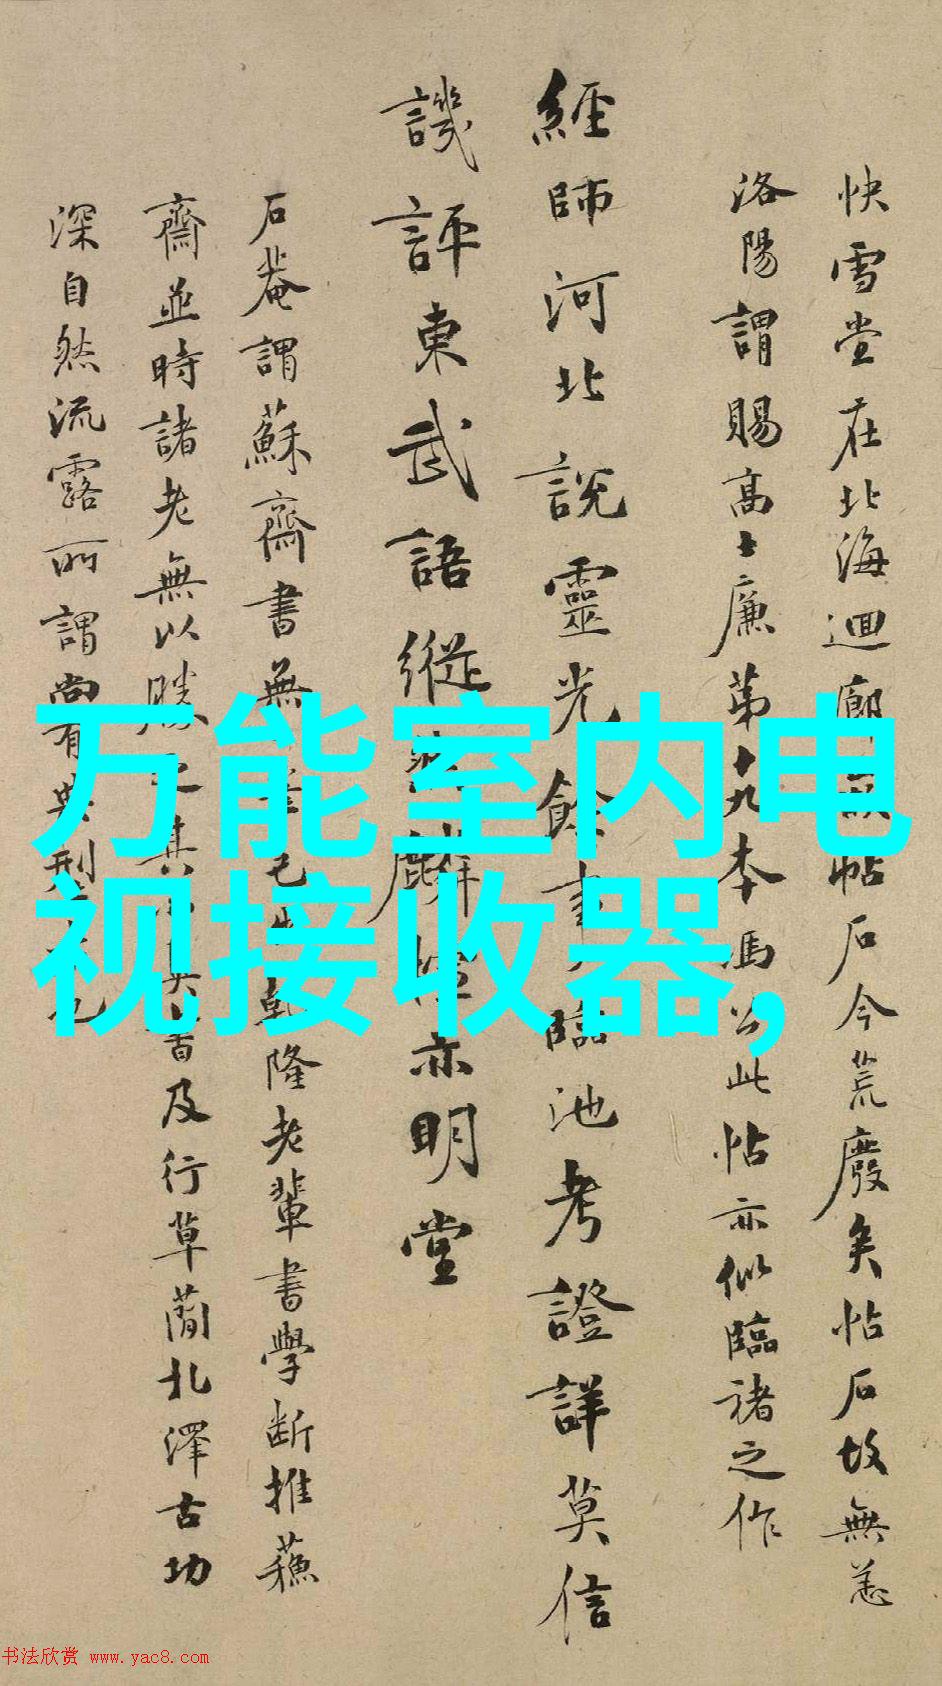 快雪堂在北海迴廊帖石今荒廢矣帖石故無恙
洛陽謂賜高士廉第十九本馮公此帖亦似臨諸之作
經師河北說靈光餘事臨池考證詳莫信
譏評東武語縱亦明堂
石菴謂蘇齋書無乾隆老輩書學斷推蘇
齋並時諸老無以勝及行草蘭北澤古功
深自然流露所謂尚有典型
万能室内电
视接收器,
书法欣赏 www.yac8.com